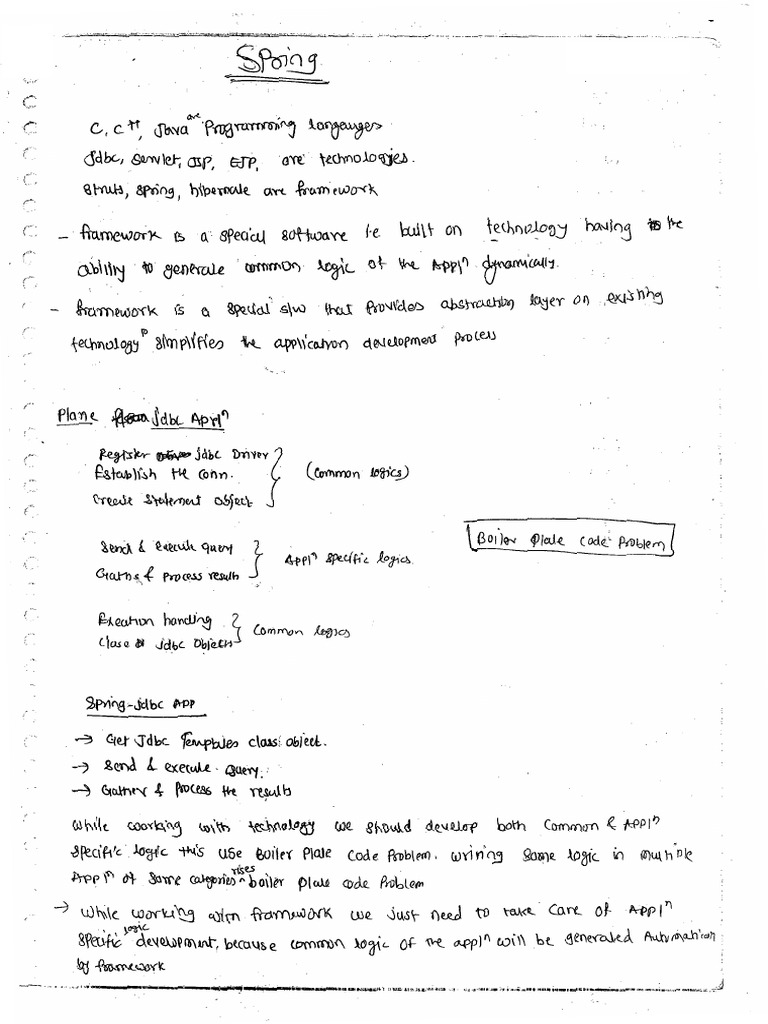 Spring
C, C++, Java are Programming langauges
Jdbc, Servlet, JSP, EJP, are technologies.
Struts, Spring, hibernate are framework
- framework is a special software i.e built on technology having the
ability to generate common logic of the Appln dynamically.
- framework is a special s/w that provides abstraction layer on existing
technology simplifies the application development process
Plane Jdbc Appln
Register Jdbc Driver
Establish the conn.
Create statement object
(Common logics)
Send & execute query
Gather & process results
Appln specific logics
Boiler Plate Code Problem
Exeation handling
Close Jdbc Objects
Common logics
Spring-Jdbc App
→ Get Jdbc Templates class object.
→ Send & execute query.
→ Gather & Process the results
While working with technology we should develop both Common & Appln
specific logic this use Boiler Plate Code Problem. wrining Same logic in multiple
Appln of same categories rises boiler plate code Problem
→ While working with framework we just need to take care of Appln
specific logic development, because common logic of the appln will be generated
by framework